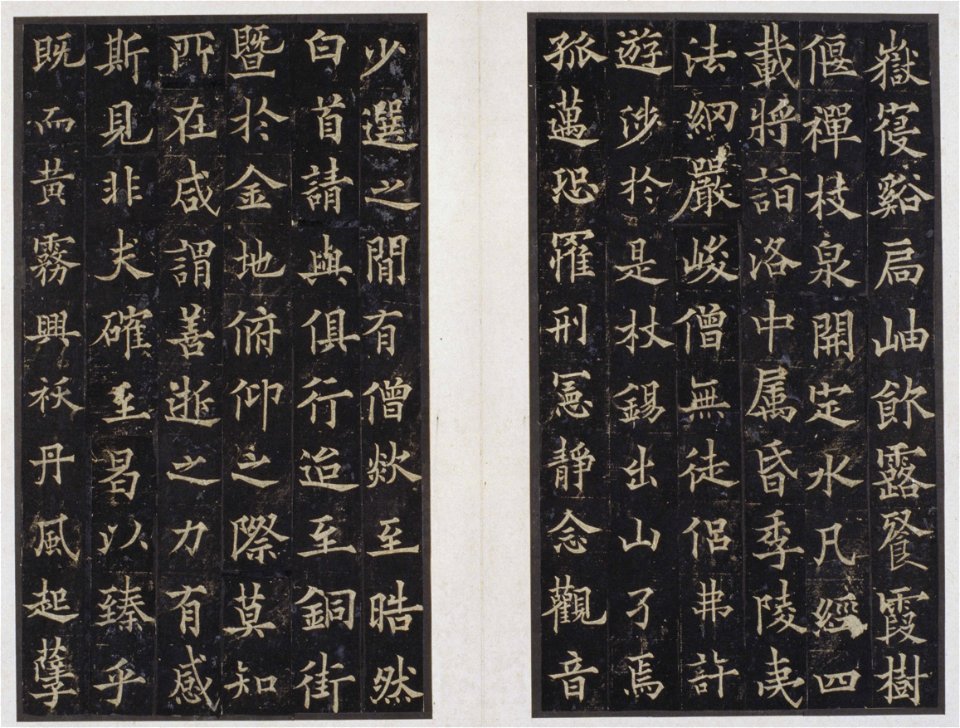 嶽寑谿扃岫飮露飡霞樹
偃禪枝泉開定水凡經四
載將詣洛中属昏季陵夷
法網嚴峻僧無徒侶弗許
遊涉於是杖錫出山了焉
孤邁恐罹刑憲靜念觀音
少選之閒有僧欻至晧然
白首請與俱行迨至銅街
暨於金地俯仰之際莫知
所在咸謂善逝之力有感
斯見非夫確至曷以臻乎
既而黃霧興祅丹風起孽